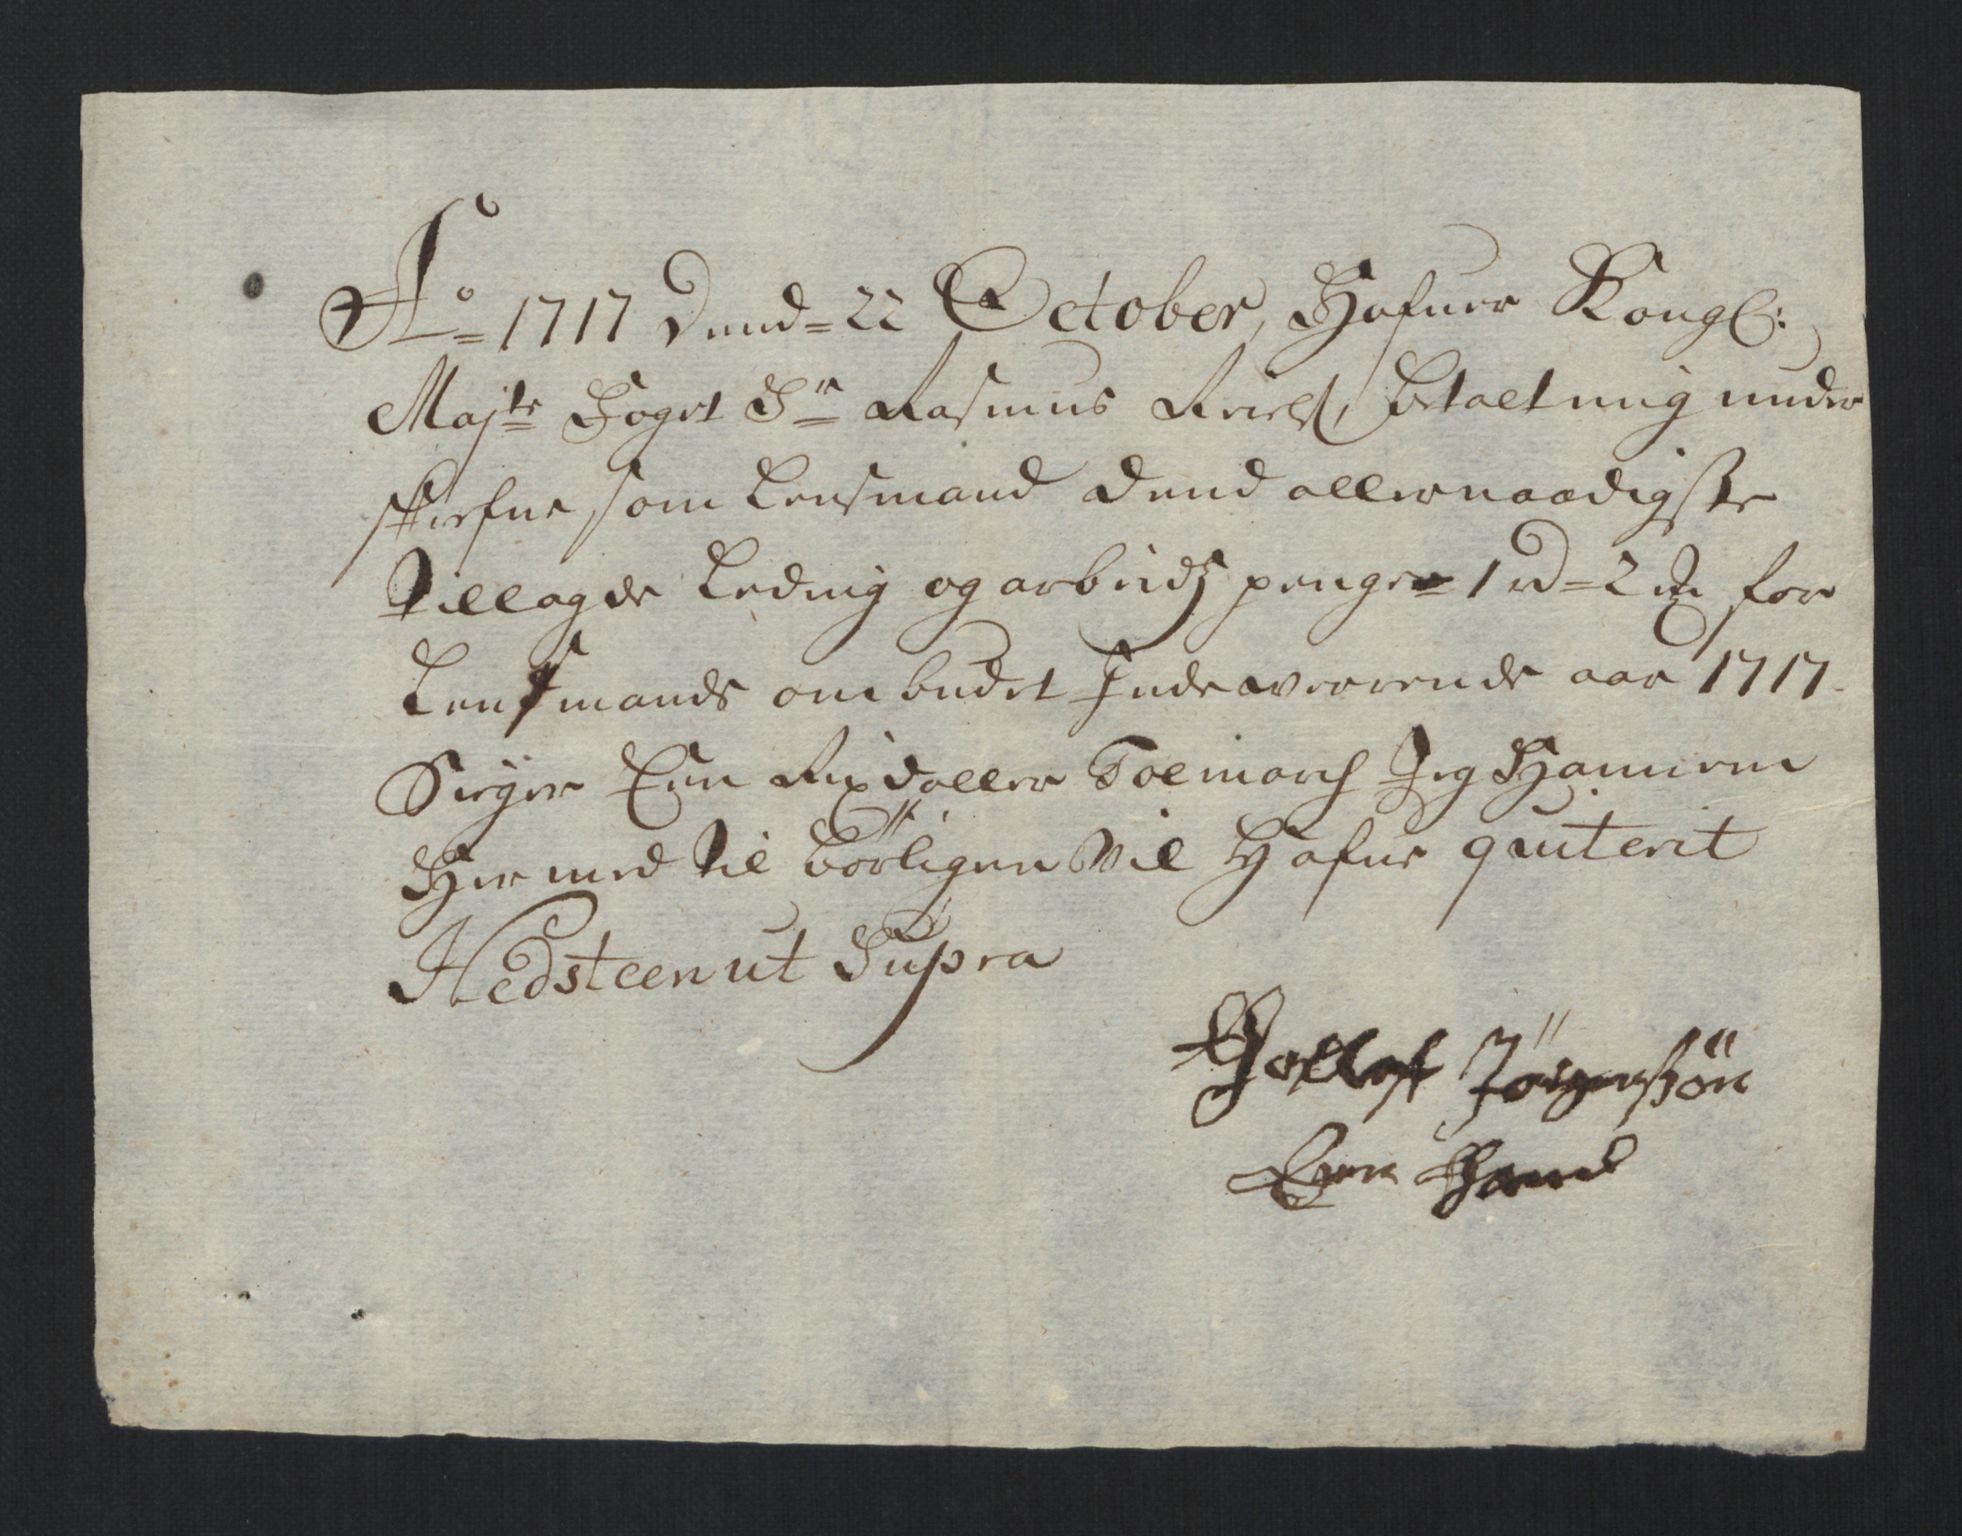 Ao 1717 Dend 22 October, Hafuer Kongl:
Majts Foget Sr Rasmus betalt mig under
skrefne som Lensmand dend allernaadigste
tillagde Leding og arbeids penger 1 rd 2 for
Lensmands ombudet Indeverrende aar 1717
Siger Een Rixdaller Toe march Jeg Hannem
Her med til börligen Vil Hafue quiterit
Hedsteen ut Supra
Jörgensön
Egen Haand